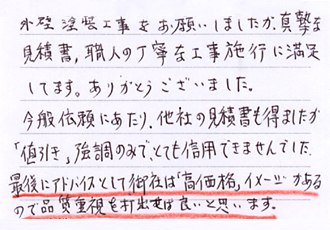 外壁塗装工事をお願いしましたが、真摯な
見積書，職人の丁寧な工事施行に満足
してます。ありがとうございました。
今般依頼にあたり、他社の見積書も得ましたが
「値引き」強調のみで、とても信用できませんでした。
最後にアドバイスとして御社は「高価格」イメージがある
ので品質重視を打出せば良いと思います。